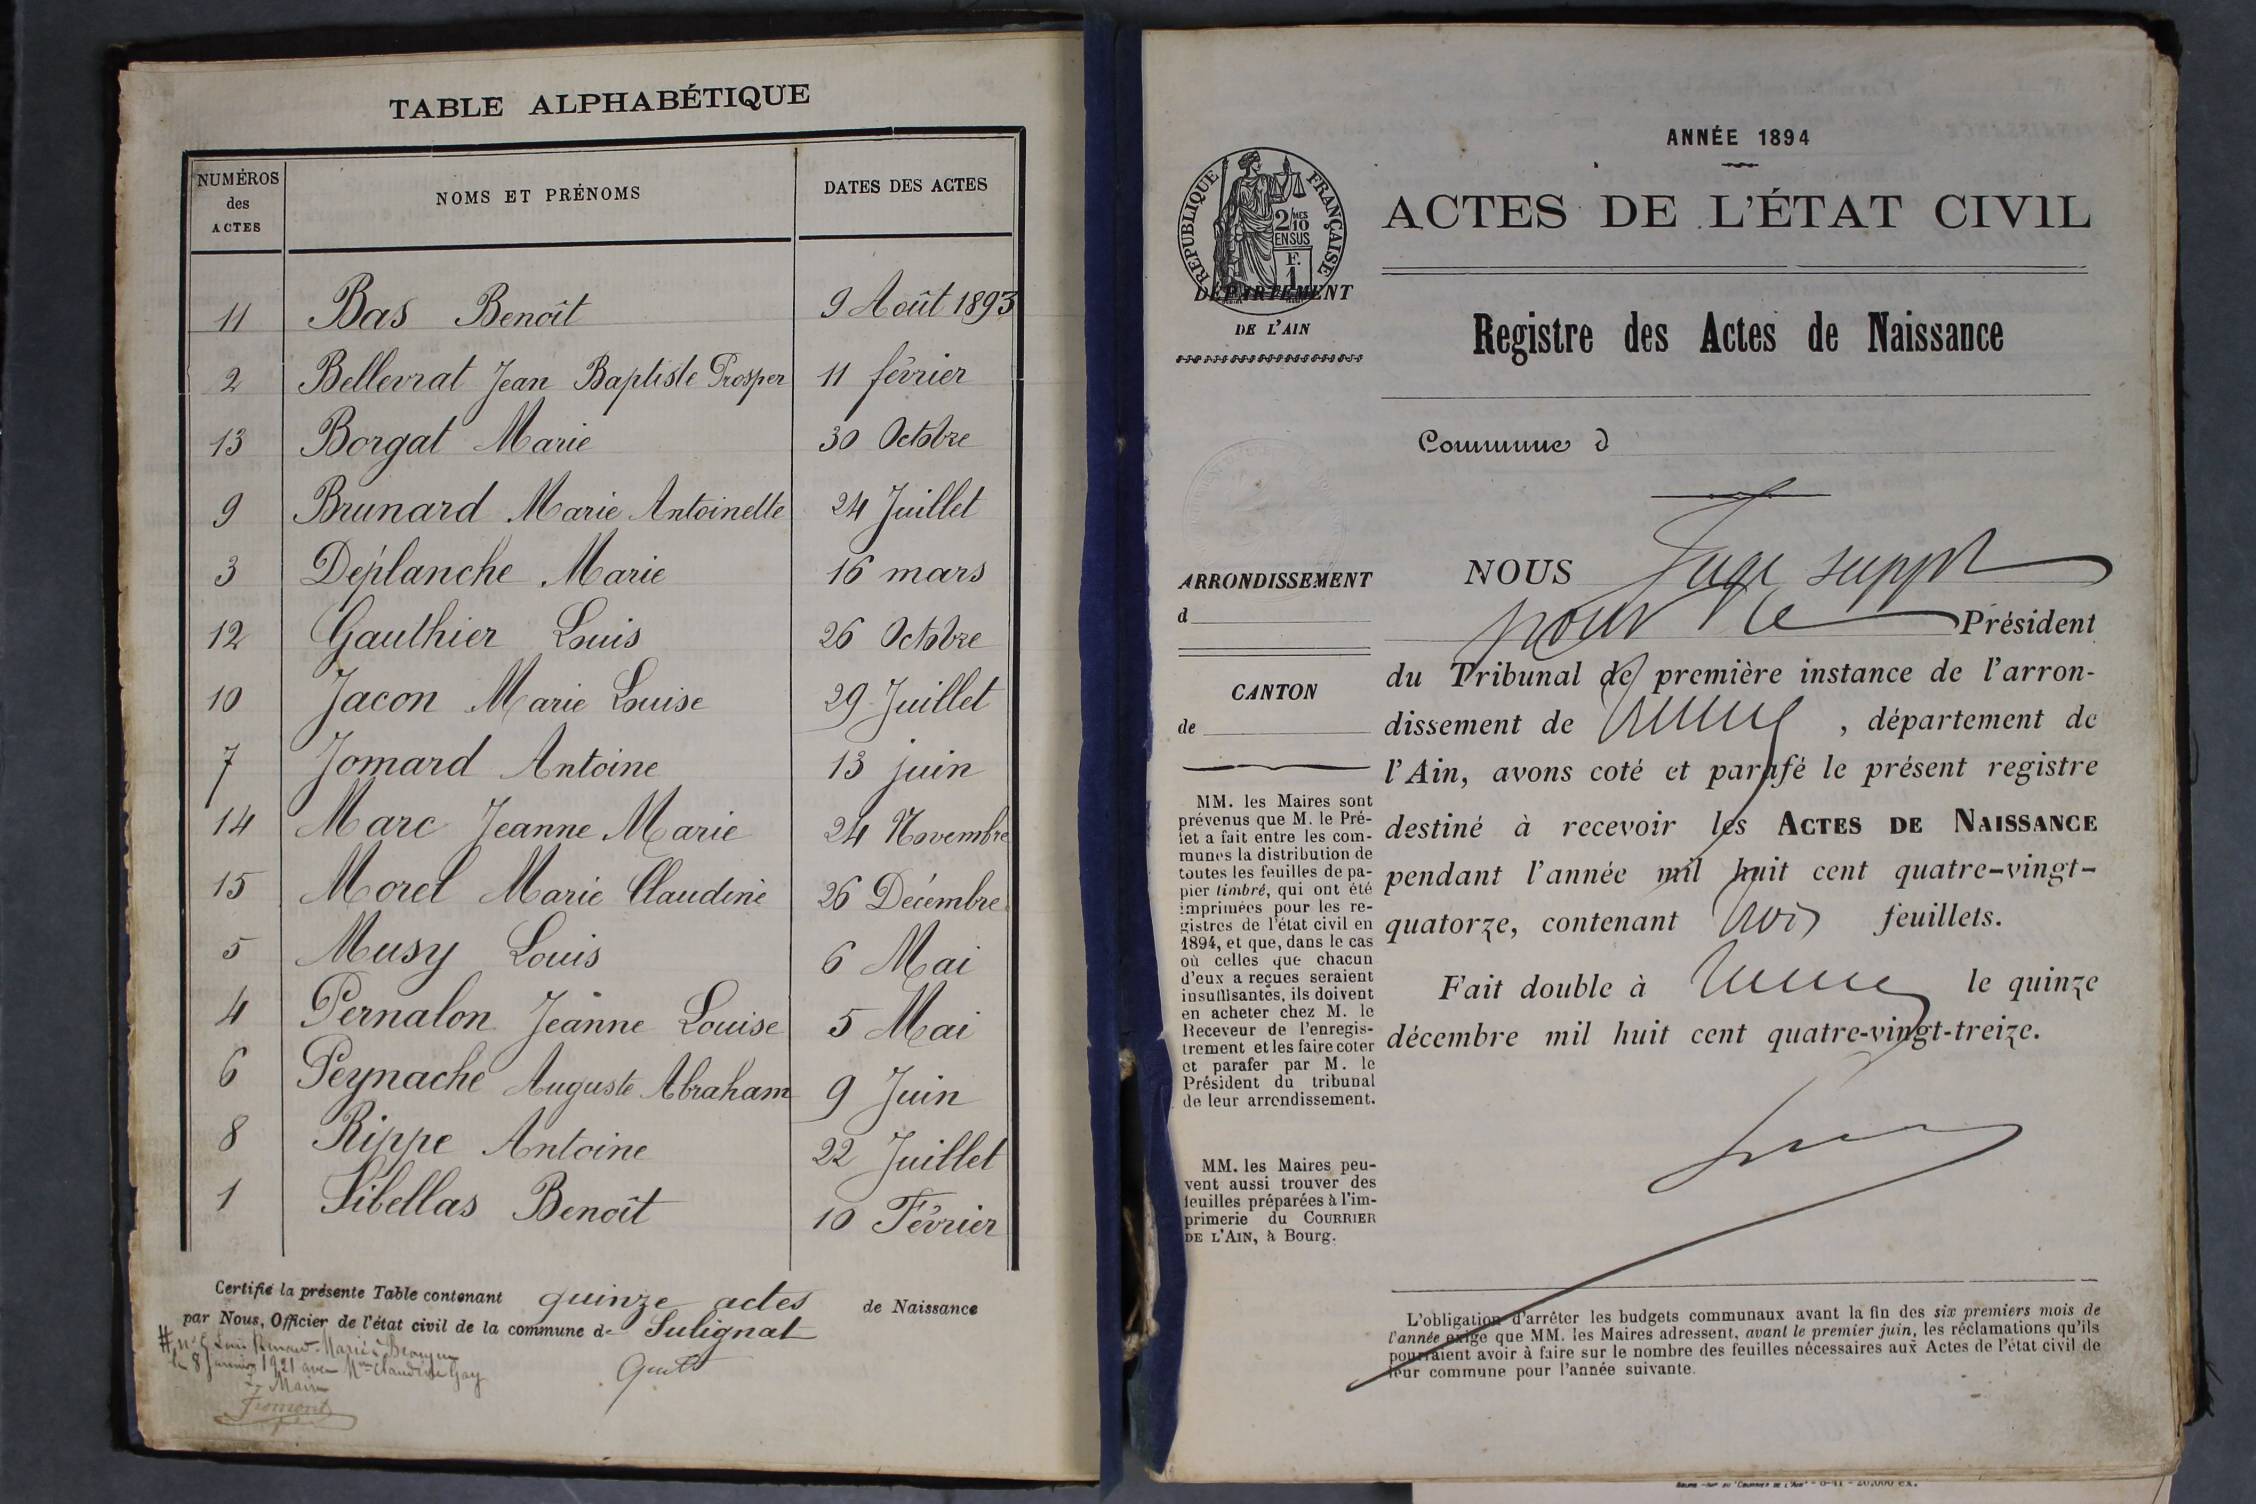 TABLE ALPHABÉTIQUE
NUMÉROS des ACTES NOMS ET PRÉNOMS DATES DES ACTES
11 Bas Benoît 9 Août 1893
2 Bellevrat Jean Baptiste Prosper 11 février
13 Borgat Marie 30 Octobre
9 Brunard Marie Antoinette 24 Juillet
3 Déplanche Marie 16 mars
12 Gauthier Louis 26 Octobre
10 Jacon Marie Louise 29 Juillet
7 Jomard Antoine 13 juin
14 Marc Jeanne Marie 24 Novembre
15 Morel Marie Claudine 26 Décembre
5 Musy Louis 6 Mai
4 Pernalon Jeanne Louise 5 Mai
6 Peynache Auguste Abraham 9 Juin
8 Rippe Antoine 22 Juillet
1 Sibellas Benoît 10 Février
Certifié la présente Table contenant quinze actes de Naissance
par Nous, Officier de l'état civil de la commune de Sulignat
le 8 Janvier 1921 avec Claudine Gay
Le Maire
Fromont
ANNÉE 1894
RÉPUBLIQUE FRANÇAISE
2/10 MES
EN SUS
F.
1
ACTES DE L'ÉTAT CIVIL
DÉPARTEMENT
DE L'AIN
Registre des Actes de Naissance
Commune d
ARRONDISSEMENT
d
CANTON
de
MM. les Maires sont
prévenus que M. le Pré-
fet a fait entre les com-
munes la distribution de
toutes les feuilles de pa-
pier timbré, qui ont été
imprimées pour les re-
gistres de l'état civil en
1894, et que, dans le cas
où celles que chacun
d'eux a reçues seraient
insuffisantes, ils doivent
en acheter chez M. le
Receveur de l'enregis-
trement et les faire coter
et parafer par M. le
Président du tribunal
de leur arrondissement.
MM. les Maires peu-
vent aussi trouver des
feuilles préparées à l'im-
primerie du COURRIER
DE L'AIN, à Bourg.
NOUS Juge suppt
pour le Président
du Tribunal de première instance de l'arron-
dissement de , département de
l'Ain, avons coté et parafé le présent registre
destiné à recevoir les ACTES DE NAISSANCE
pendant l'année mil huit cent quatre-vingt-
quatorze, contenant trois feuillets.
Fait double à le quinze
décembre mil huit cent quatre-vingt-treize.
L'obligation d'arrêter les budgets communaux avant la fin des six premiers mois de
l'année exige que MM. les Maires adressent, avant le premier juin, les réclamations qu'ils
pourraient avoir à faire sur le nombre des feuilles nécessaires aux Actes de l'état civil de
leur commune pour l'année suivante.